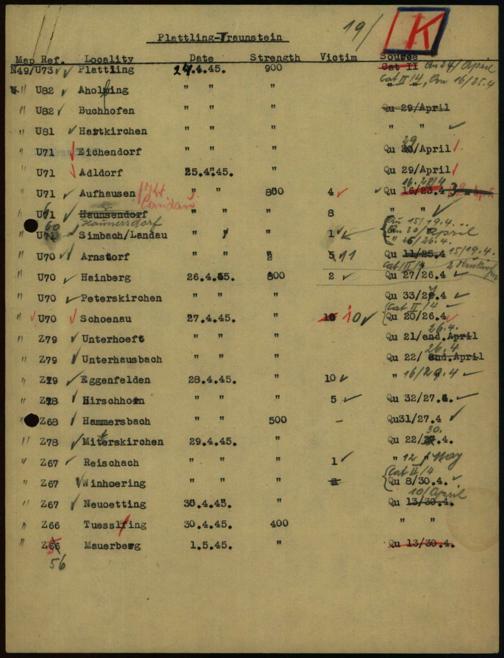 19/ K
Plattling-Traunstein
Map Ref. Locality Date Strength Victim Source
N49/U73 Plattling 24.4.45. 900 Cat II
" U82 Aholping " " " Cat II/4,
" U82 Buchhofen " " " Qu 29/April
" U81 Hartkirchen " " " " "
" U71 Eichendorf " " " Qu 29/April
" U71 Adldorf 25.4.45. " Qu 29/April
" U71 Aufhausen " " 800 4 Qu 16/23.4
" Haunsendorf " " " 8
Haunersdorf
" Simbach/Landau " " " 1 " 16/26.4.
" U70 Arnstorf " " " Qu 11/25.4 15/19.4.
" U70 Hainberg 26.4.45. 800 2 Qu 27/26.4
" U70 Peterskirchen " " " Qu 33/26.4
" U70 Schoenau 27.4.45. " 10 10 Qu 20/26.4
" Z79 Unterhoeft " " " Qu 21/end.April 26.4.
" Z79 Unterhausbach " " " Qu 22/ end.April 26.4.
" Z79 Eggenfelden 28.4.45. " 10 " 16/29.4
" Z78 Hirschhorn " " " 5 Qu 32/27.4.
" Z68 Hammersbach " " 500 - Qu31/27.4
" Z78 Mitterskirchen 29.4.45. " Qu 22/ 30.4.
" Z67 Reischach " " " 1 " 12/May
" Z67 Winhoering " " " Qu 8/30.4.
" Z67 Neuoetting 30.4.45. " Qu 13/30.4. 10/April
" Z66 Tuessling 30.4.45. 400 " "
" Z66 Mauerberg 1.5.45. " Qu 13/30.4.
56